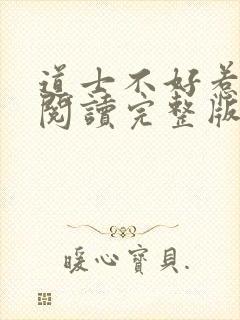 道士不好惹
閱讀完整版
暖心寶貝.